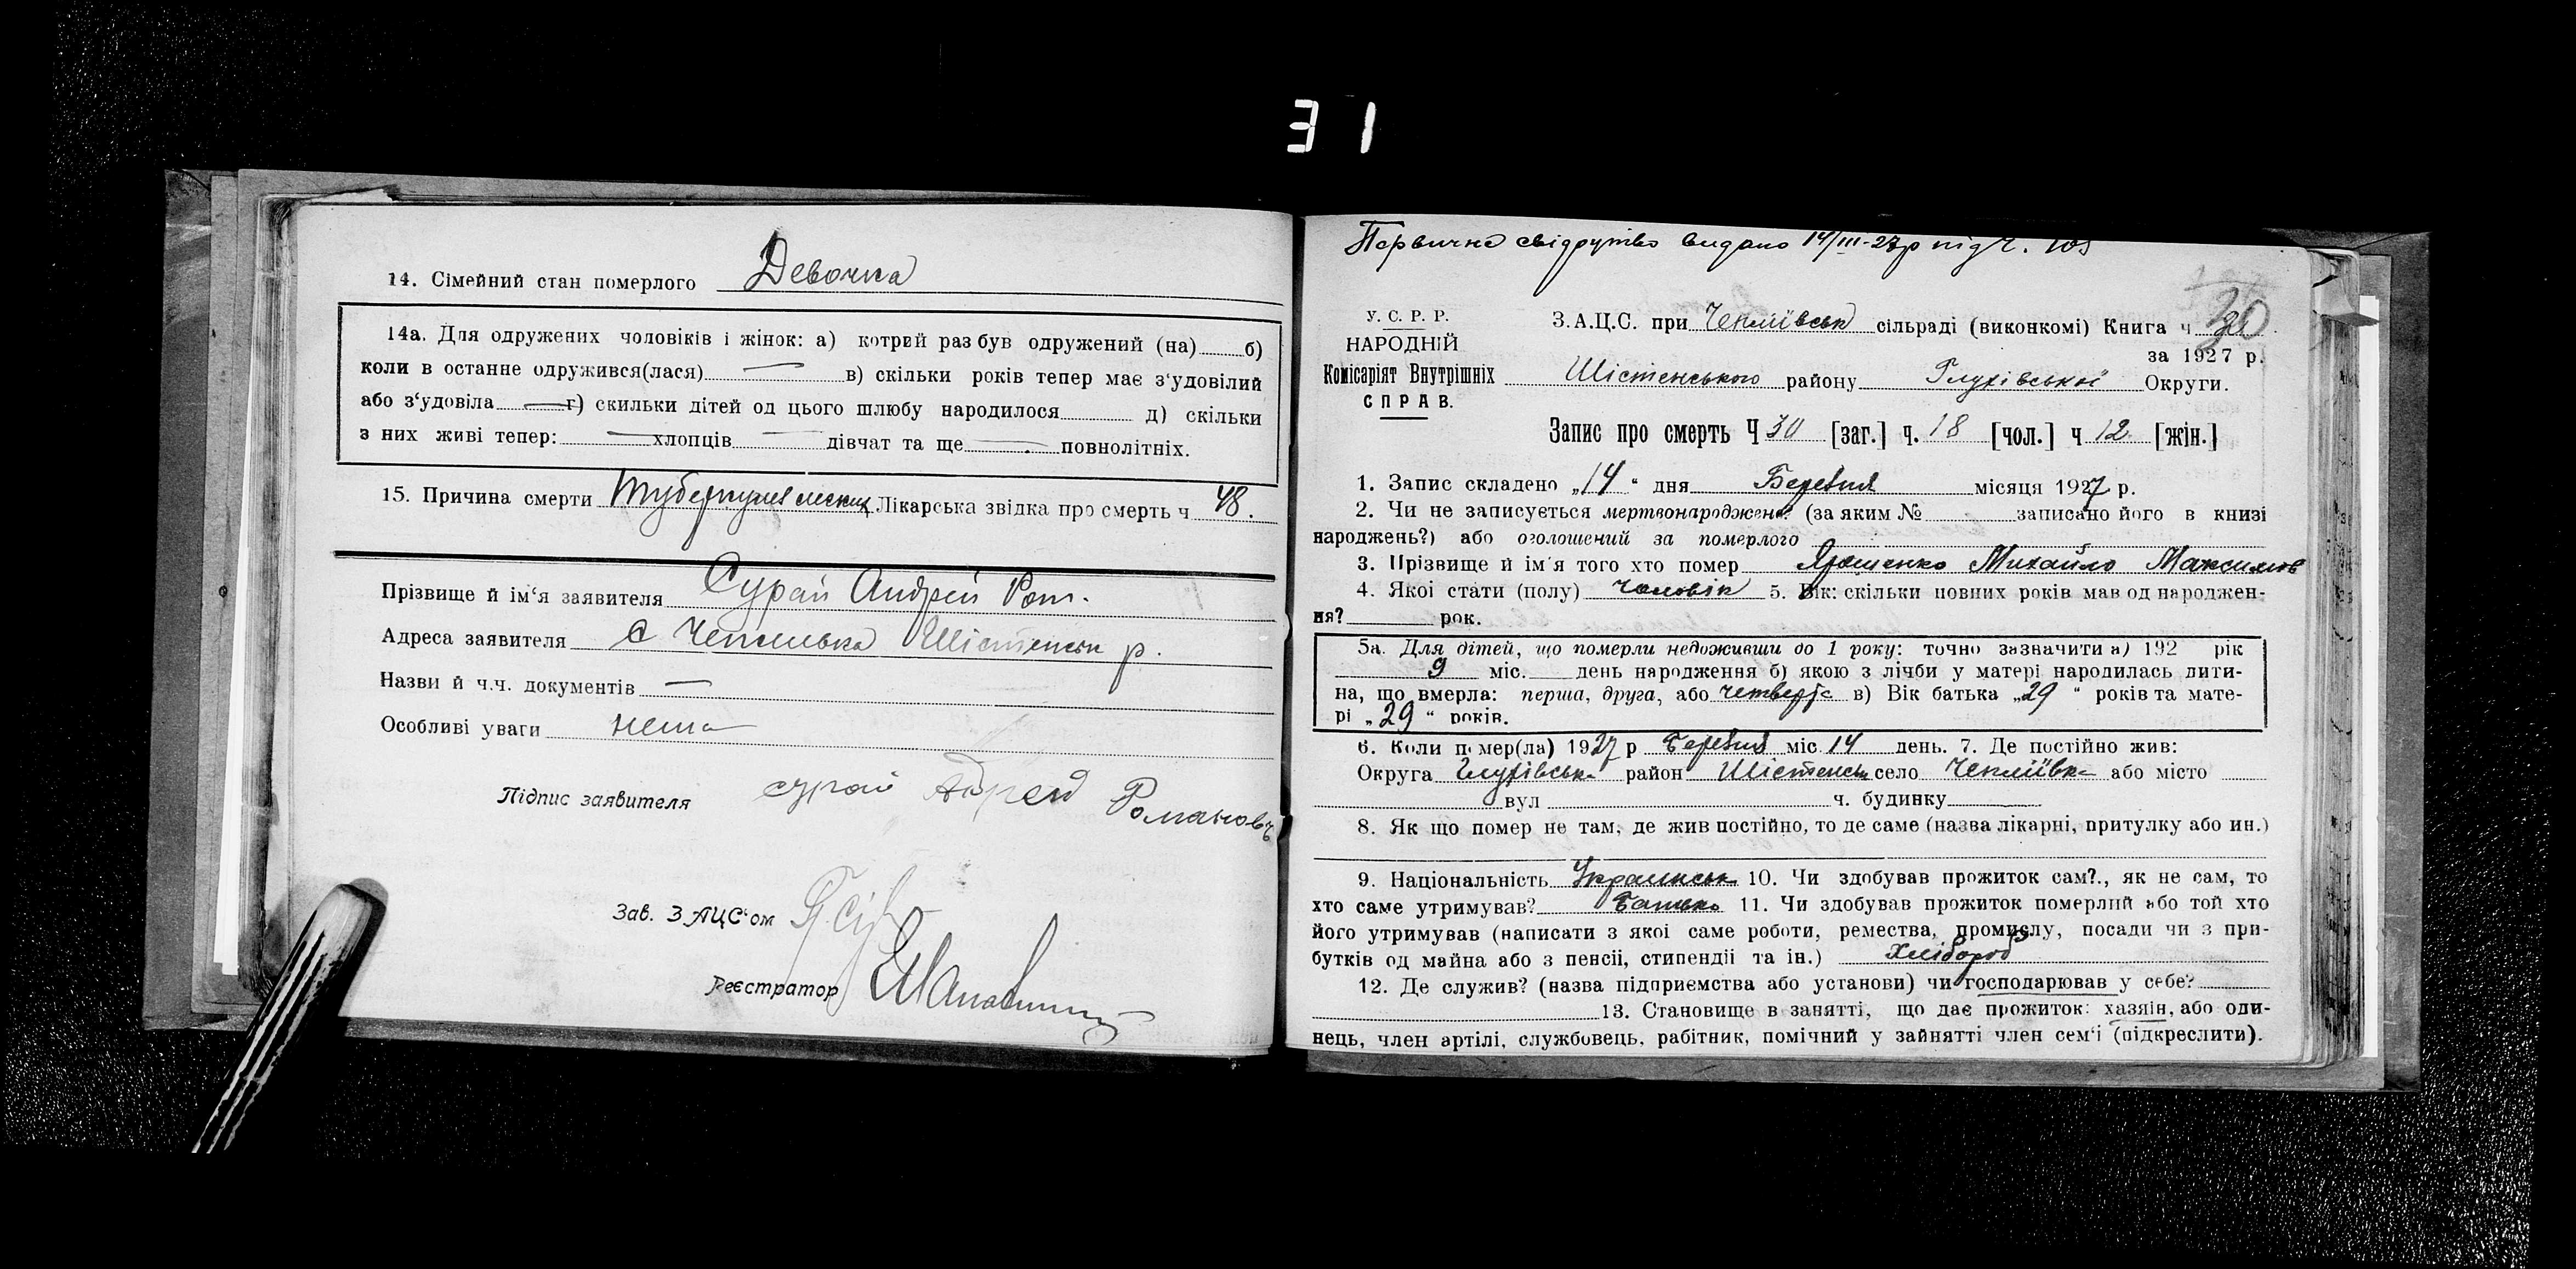 31
14. Сімейний стан померлого Девочка
14а. Для одружених чоловіків і жінок: а) котрий раз був одружений (на) б)
коли в останне одружився(лася) — в) скільки років тепер має з‘удовілий
або з‘удовіла — г) скильки дітей од цього шлюбу народилося д) скільки
з них живі тепер: — хлопців — дівчат та ще — повнолітніх.
15. Причина смерти Туберкулез Лікарська звідка про смерть ч 48.
Прізвище й ім‘я заявителя Сурай Андрей Ром.
Адреса заявителя с Чепліївка Шістенськ р.
Назви й ч.ч. документів —
Особливі уваги нема
Підпис заявителя Сурай Андрей Романовъ
Зав. ЗАЦС‘ом
Реєстратор
Первичне свідоцтво видано 14/III-27р під ч. 109
У. С. Р. Р.
НАРОДНІЙ
Комісаріят Внутрішніх
СПРАВ.
З.А.Ц.С. при Чепліївськ сільраді (виконкомі) Книга ч 30
за 1927 р.
Шістенського району Глухівської Округи.
Запис про смерть Ч 30 [заг.] ч. 18 [чол.] ч 12 [жін.]
1. Запис складено „14“ дня Березня місяця 1927 р.
2. Чи не записується мертвонароджене? (за яким № записано його в книзі
народжень?) або оголошений за померлого
3. Прізвище й ім‘я того хто помер Ярошенко Михайло Максимов
4. Якої стати (полу) Чоловік 5. Вік: скільки повних років мав од народжен-
ня? рок.
5а. Для дітей, що померли недоживши до 1 року: точно зазначити а) 192 рік
9 міс. день народження б) якою з лічби у матері народилась дити-
на, що вмерла: перша, друга, або четверта в) Вік батька „29“ років та мате-
рі „29“ років.
6. Коли помер(ла) 1927 р Березня міс. 14 день. 7. Де постійно жив:
Округа Глухівська район Шістенськ село Чепліївка або місто
вул ч. будинку
8. Як що помер не там, де жив постійно, то де саме (назва лікарні, притулку або ин.)
9. Національність Украинськ 10. Чи здобував прожиток сам?., як не сам, то
хто саме утримував? Батько 11. Чи здобував прожиток померлий або той хто
його утримував (написати з якої саме роботи, ремества, промислу, посади чи з при-
бутків од майна або з пенсії, стипендії та ін.) Хлібороб
12. Де служив? (назва підприємства або установи) чи господарював у себе?
13. Становище в занятті, що дає прожиток: хазяїн, або оди-
нець, член артілі, службовець, рабітник, помічний у зайнятті член сем‘ї (підкреслити).